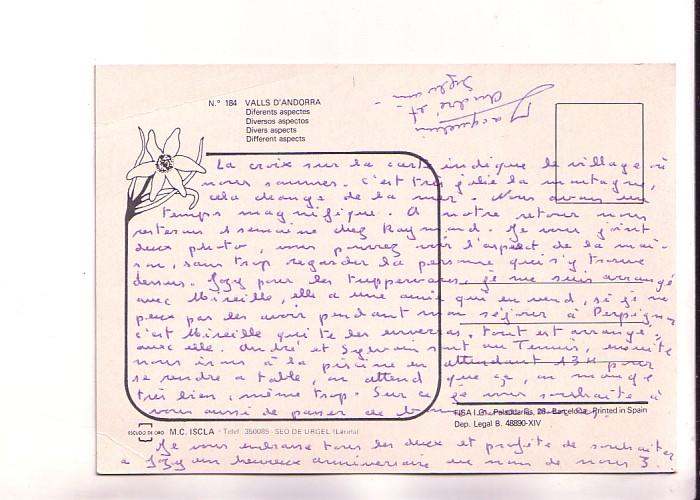 N.° 184 VALLS D'ANDORRA
Diferents aspectes
Diversos aspectos
Divers aspects
Different aspects
Jacqueline
André et
Sylvain
La croix sur la carte indique le village où
nous sommes. C'est très jolie la montagne,
cela change de la mer. Nous avons un
temps magnifique. A notre retour nous
resterons 1 semaine chez Raymond. Je vous joint
deux photo, vous pourrez voir l'aspect de la mai-
son, sans trop regarder la personne qui s'y trouve
dessus. Jozy pour les tuppervares, je me suis arrangé
avec Mireille, elle a une amie qui en vend, si je ne
peux pas les avoir pendant mon séjour à Perpignan
c'est Mireille qui te les enverras, tout est arrangé
avec elle. André et Sylvain sont au Tennis, ensuite
nous irons à la piscine en attendant 13H pour
se rendre a table, on attend que ça, on mange
très bien, même trop. Sur ce je vous souhaite à
vous aussi de passer de
FISA I.G. Palaudarias, 26 - Barcelona Printed in Spain
Dep. Legal B. 48890-XIV
ESCUDO DE ORO M.C. ISCLA - Telef. 350085 - SEO DE URGEL (Lérida)
Je vous embrasse tous les deux et profite de souhaiter
a Jozy un heureux anniversaire au nom de nous 3.